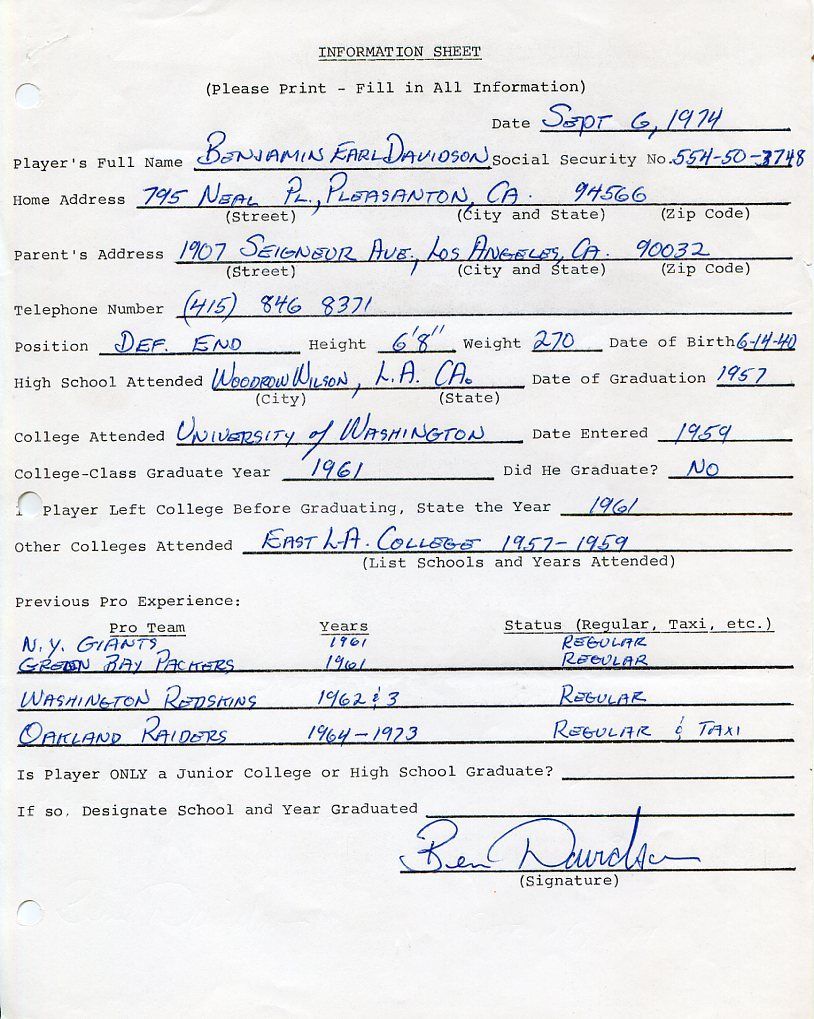 INFORMATION SHEET
(Please Print - Fill in All Information)
Date SEPT 6, 1974
Player's Full Name BENJAMIN EARL DAVIDSON Social Security No.
Home Address 795 NEAL PL., PLEASANTON, CA. 94566
(Street) (City and State) (Zip Code)
Parent's Address 1907 SEIGNEUR AVE., LOS ANGELES, CA. 90032
(Street) (City and State) (Zip Code)
Telephone Number (415) 846 8371
Position DEF. END Height 6'8" Weight 270 Date of Birth 6-14-40
High School Attended WOODROW WILSON, L.A. CA. Date of Graduation 1957
(City) (State)
College Attended UNIVERSITY of WASHINGTON Date Entered 1959
College-Class Graduate Year 1961 Did He Graduate? NO
Player Left College Before Graduating, State the Year 1961
Other Colleges Attended EAST L.A. COLLEGE 1957-1959
(List Schools and Years Attended)
Previous Pro Experience:
Pro Team Years Status (Regular, Taxi, etc.)
N.Y. GIANTS 1961 REGULAR
GREEN BAY PACKERS 1961 REGULAR
WASHINGTON REDSKINS 1962 & 3 REGULAR
OAKLAND RAIDERS 1964-1973 REGULAR & TAXI
Is Player ONLY a Junior College or High School Graduate?
If so, Designate School and Year Graduated
Ben Davidson
(Signature)